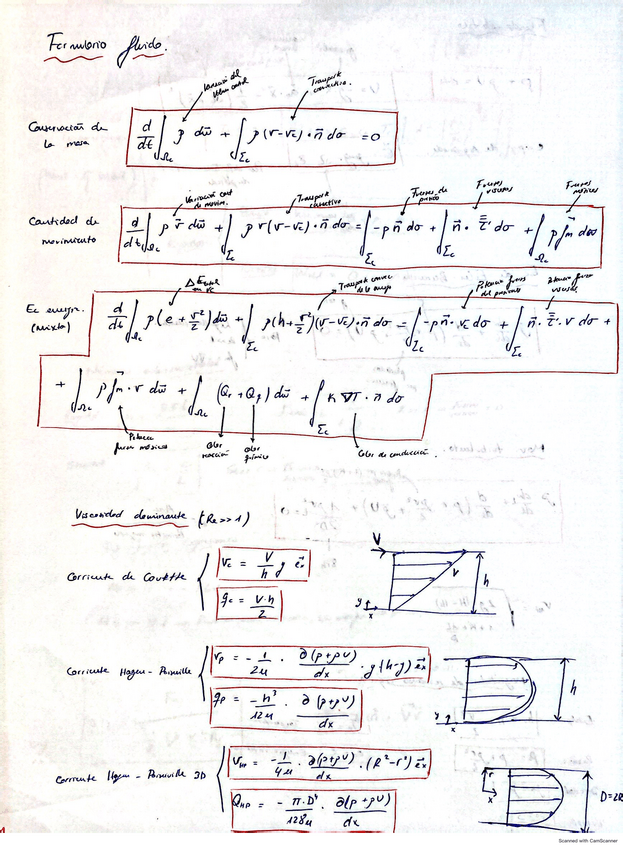 Formulario fluidos.
Variación del volumen control
Transporte convectivo.
Conservación de la masa
d/dt ∫_Ωc ρ dω + ∫_Σc ρ(v-vc)·n⃗ dσ = 0
Variación cant de movim.
Transporte convectivo
Fuerzas de presión
Fuerzas viscosas
Fuerzas másicas
Cantidad de movimiento
d/dt ∫_Ωc ρ v⃗ dω + ∫_Σc ρ v(v-vc)·n⃗ dσ = ∫_Σc -p n⃗ dσ + ∫_Σc n⃗·τ' dσ + ∫_Ωc ρ fm dω
Δ E total en vc
Transporte convec de la energ
Potencia fuerzas del presión
Potencia fuerzas viscosas
Ec energ. (mixta)
d/dt ∫_Ωc ρ(e + v²/2) dω + ∫_Σc ρ(h + v²/2)(v-vc)·n⃗ dσ = ∫_Σc -p n⃗·vc dσ + ∫_Σc n⃗·τ'·v dσ +
+ ∫_Ωc ρ fm·v dω + ∫_Ωc (Qr + Qq) dω + ∫_Σc K ∇T·n dσ
Potencia fuerzas másicas
Calor reacción
Calor químico
Calor de conducción.
Viscosidad dominante (Re >> 1)
Corriente de Couette
vc = V/h y e⃗x
qc = V·h/2
V
v
h
y
x
Corriente Hagen-Poiseuille
vp = -1/2μ · ∂(p+ρU)/dx · y(h-y) e⃗x
qp = -h³/12μ · ∂(p+ρU)/dx
h
y
x
Corriente Hagen-Poiseuille 3D
VHP = -1/4μ · ∂(p+ρU)/dx · (R²-r²) e⃗x
QHP = - π·D⁴/128μ · ∂(p+ρU)/dx
r
x
D=2R
Scanned with CamScanner